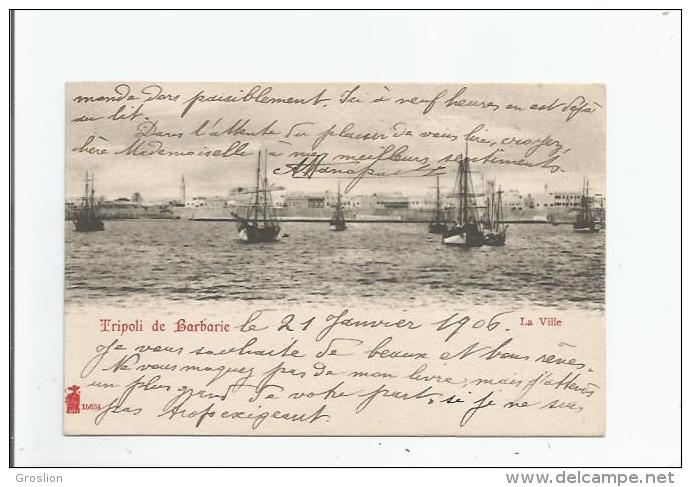 monde dors paisiblement. Ici à neuf heures on est déjà
au lit.
Dans l'attente du plaisir de vous lire, croyez,
chère Mademoiselle à mes meilleurs sentiments.
Tripoli de Barbarie le 21 Janvier 1906. La Ville
Je vous souhaite de beaux et bons rêves.
Ne vous moquez pas de mon livre, mais j'attends
un plus grand de votre part, si je ne suis
pas trop exigeant.
15634
Groslion
www.delcampe.net